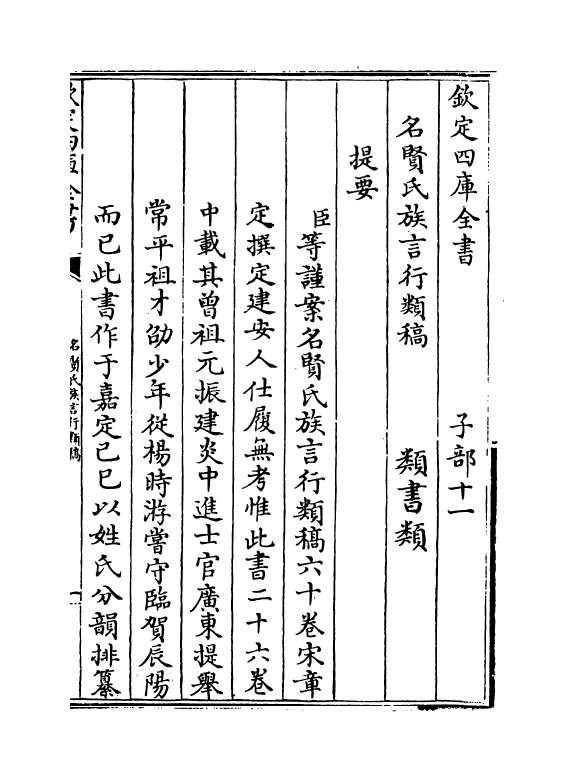 欽定四庫全書　　　　子部十一
名賢氏族言行類稿　　　類書類
提要
臣等謹案名賢氏族言行類稿六十卷宋章
定撰定建安人仕履無考惟此書二十六卷
中載其曾祖元振建炎中進士官廣東提舉
常平祖才邵少年從楊時游嘗守臨賀辰陽
而已此書作于嘉定己巳以姓氏分韻排纂
欽定四庫全書
名賢氏族言行類稿
一